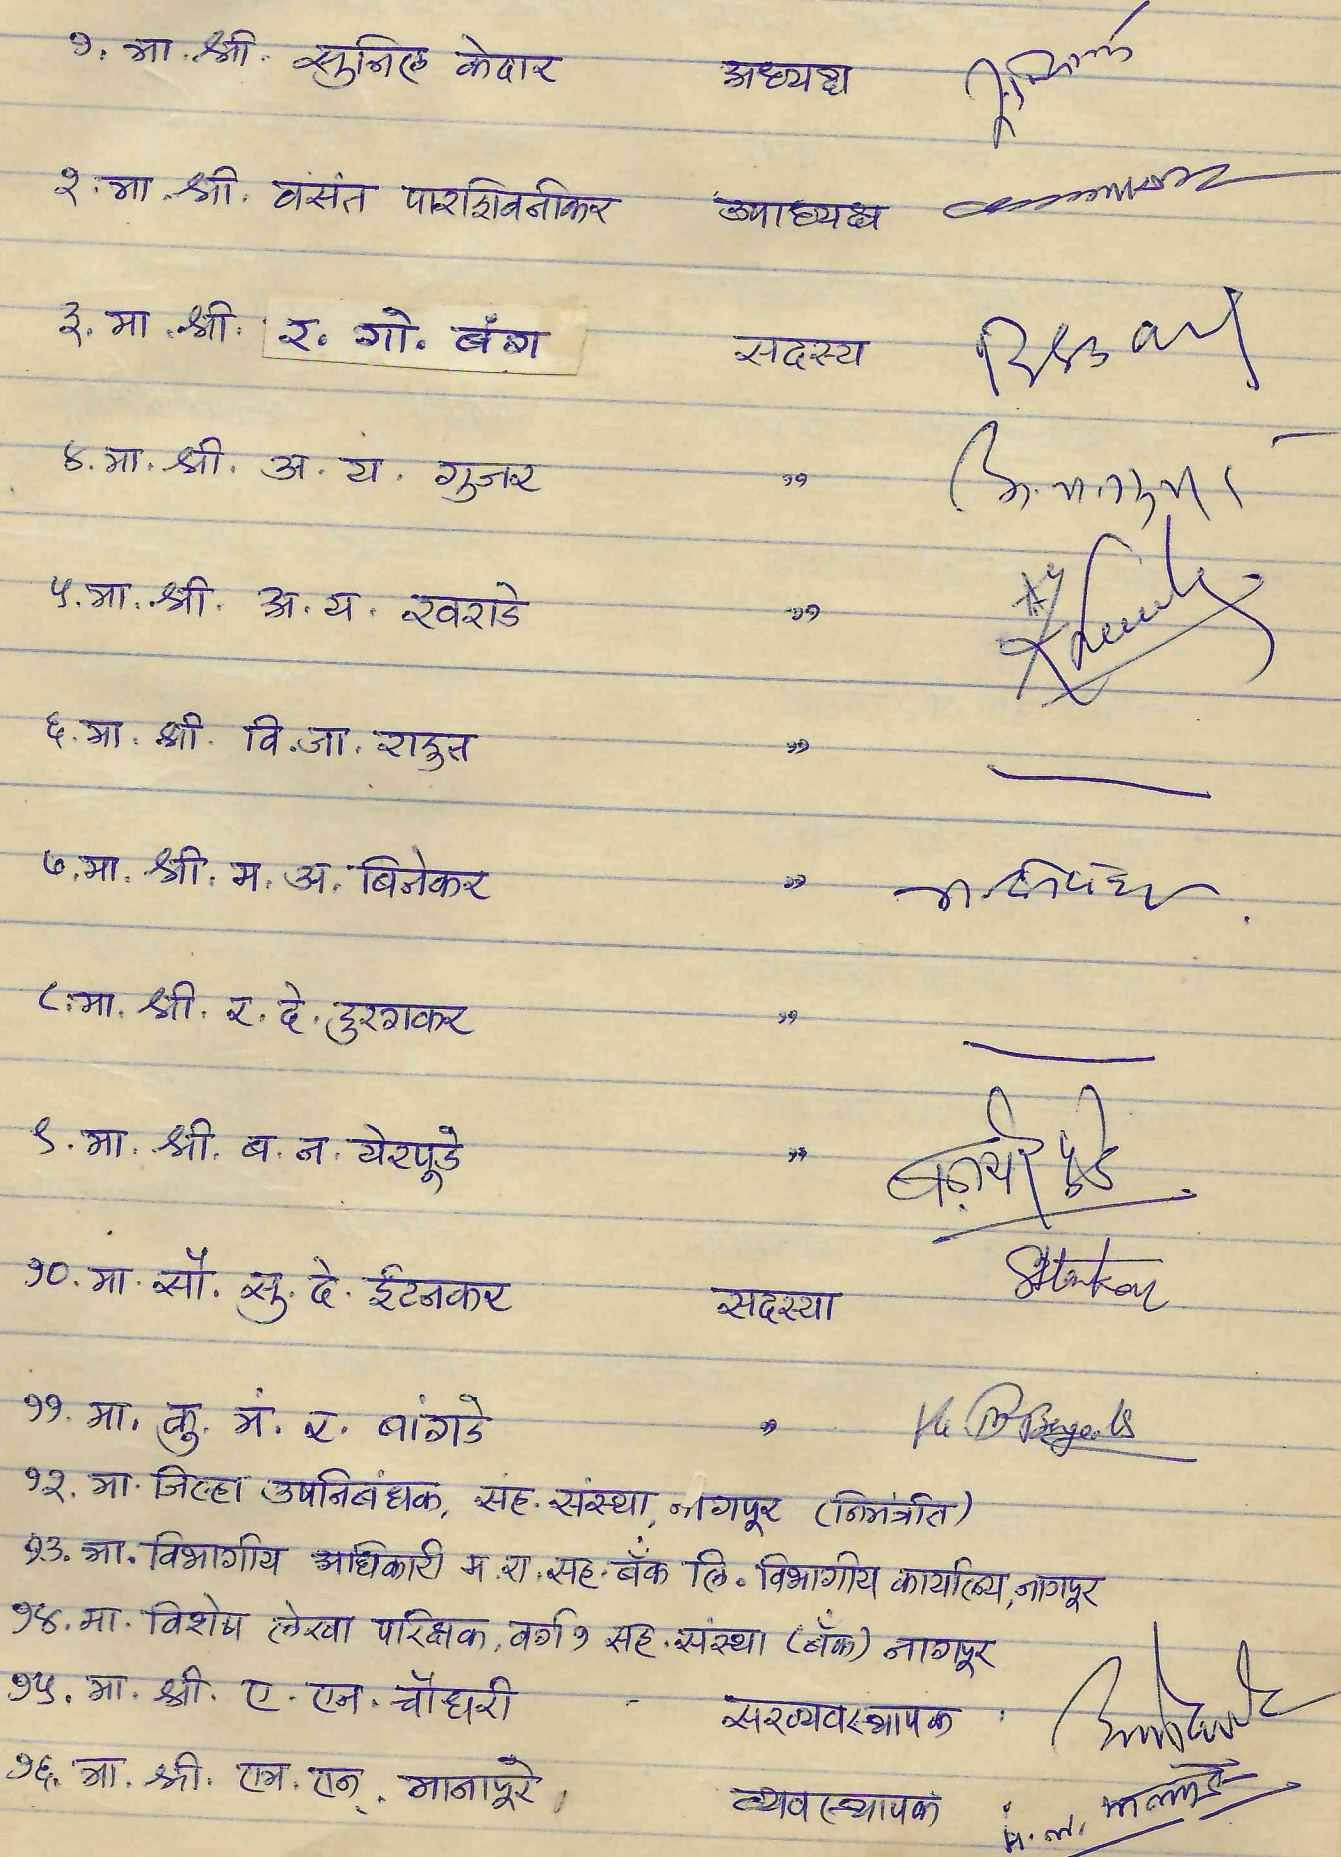 १. मा. श्री. सुनिल केदार अध्यक्ष
२. मा. श्री. वसंत पारशिवनीकर उपाध्यक्ष
३. मा. श्री. र. गो. बंग सदस्य
४. मा. श्री. अ. य. गुजर ,,
५. मा. श्री. अ. य. खराडे ,,
६. मा. श्री. वि. जा. राऊत ,,
७. मा. श्री. म. अ. बिनेकर ,,
८. मा. श्री. र. दे. दुरगकर ,,
९. मा. श्री. ब. न. येरपूडे ,,
१०. मा. सौ. सु. दे. ईटनकर सदस्या
११. मा. कु. मं. र. बांगडे ,,
१२. मा. जिल्हा उपनिबंधक, सह. संस्था, नागपूर (निमंत्रीत)
१३. मा. विभागीय अधिकारी म. रा. सह. बँक लि. विभागीय कार्यालय, नागपूर
१४. मा. विशेष लेखा परिक्षक, वर्ग १ सह. संस्था (बँक) नागपूर
१५. मा. श्री. ए. एन. चौधरी सरव्यवस्थापक
१६. मा. श्री. एम. एन. मानापूरे व्यवस्थापक